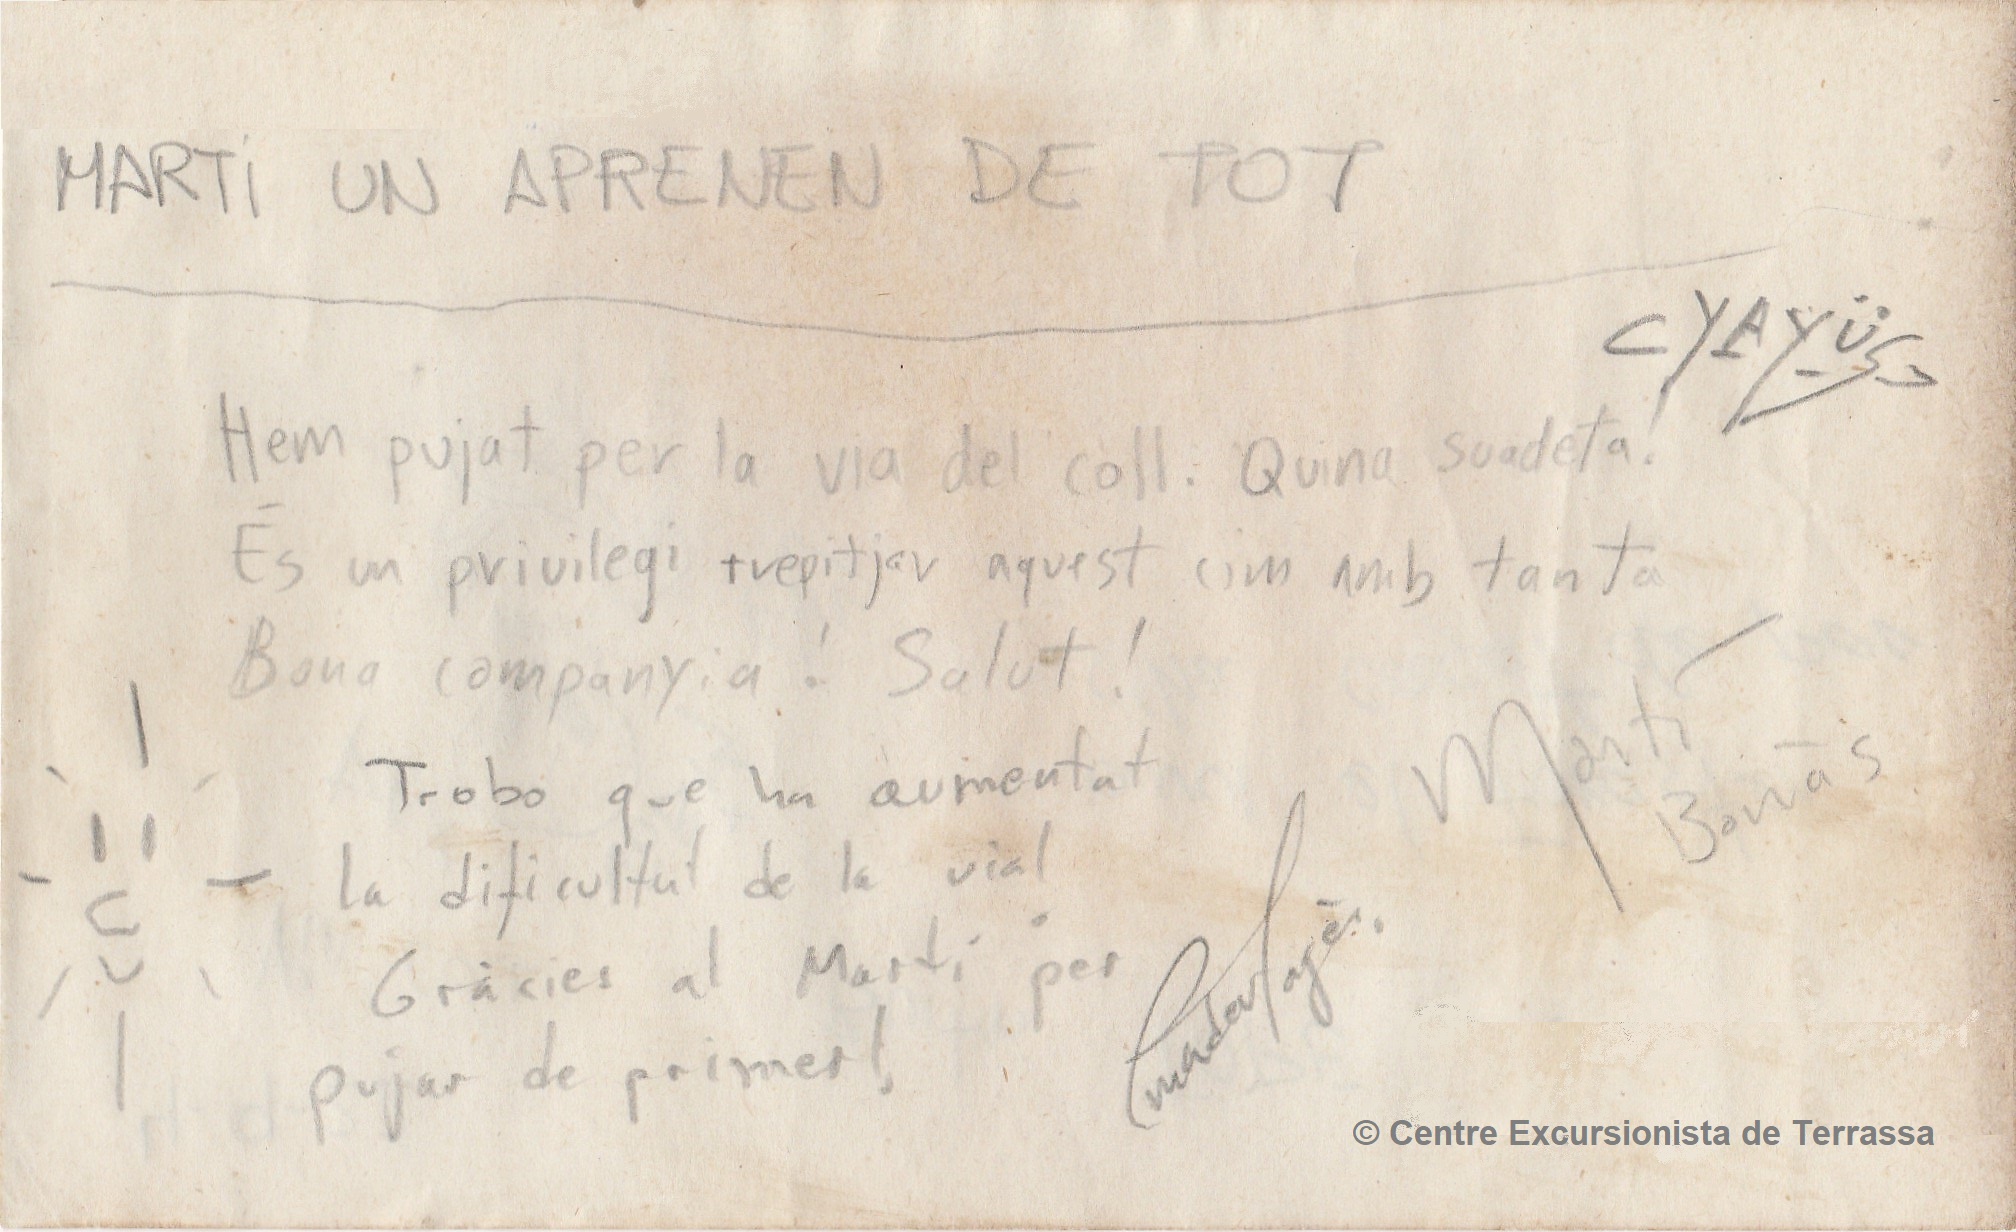 MARTÍ UN APRENEN DE TOT
CYAYÜS
Hem pujat per la via del coll. Quina suadeta!
És un privilegi trepitjar aquest cim amb tanta
Bona companyia! Salut!
Martí
Borràs
Trobo que ha aumentat
la dificultat de la via!
Gràcies al Martí per
pujar de primer!
© Centre Excursionista de Terrassa